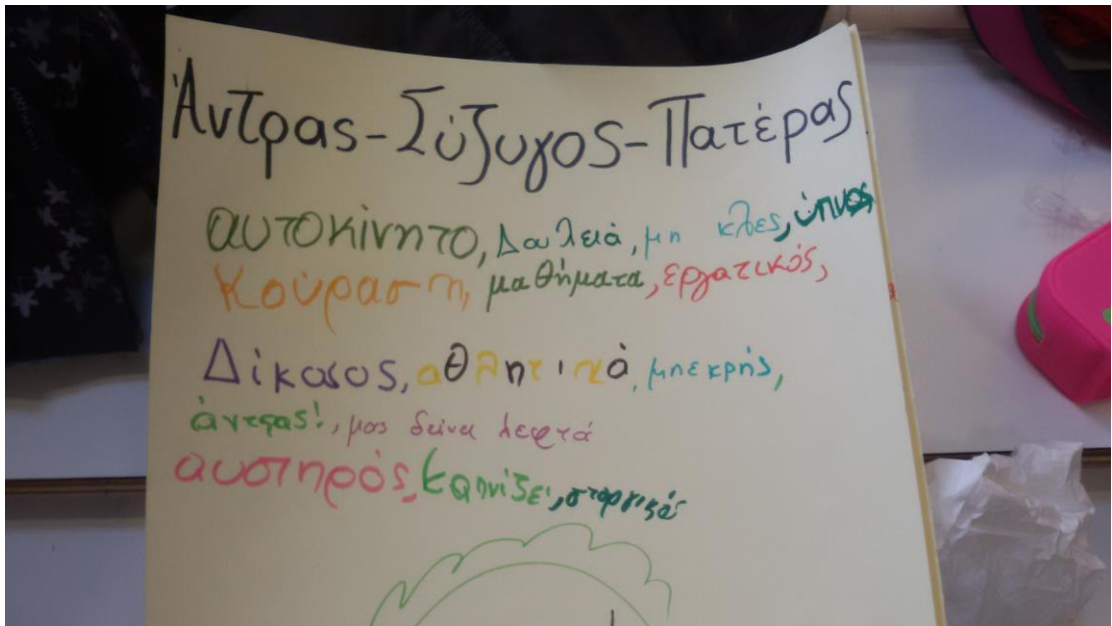 Άντρας-Σύζυγος-Πατέρας
αυτοκίνητο, Δουλειά, μη κλες, ύπνος
Κούραση, μαθήματα, εργατικός,
Δίκαιος, αθλητικά, μπεκρής,
άντρας!, μας δείνει λεφτά
αυστηρός, καπνίζει, στοργικός